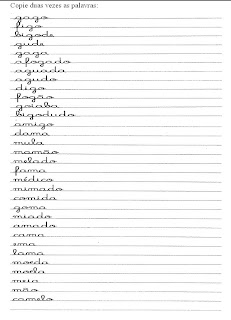 Copie duas vezes as palavras:
gago
figo
bigode
gude
gaga
afogado
aguada
agudo
digo
fogão
goiaba
bigodudo
amigo
dama
mula
mamão
melado
fama
médico
mimado
comida
goma
miado
amado
cama
ema
lama
moeda
moela
meia
mão
camelo